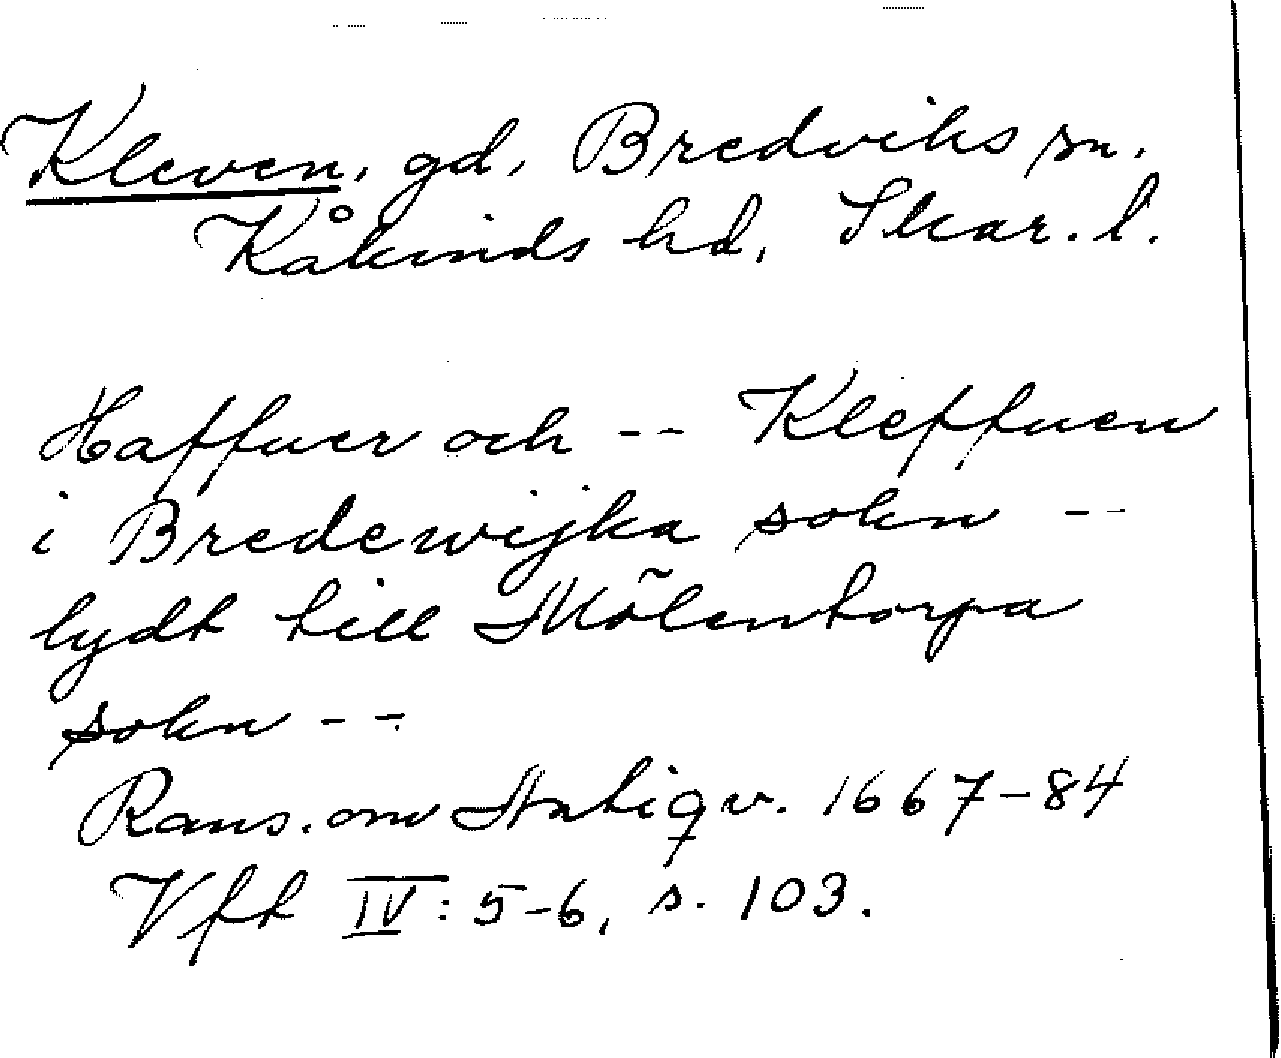 Kleven, gd, Bredviks sn.
Kåkinds hd, Skar. l.
Haffuer och -- Kleffuen
i Bredewijka sokn --
lydt till Mölentorpa
sokn --
Rans. om Antiqv. 1667-84
Vft IV: 5-6, s. 103.